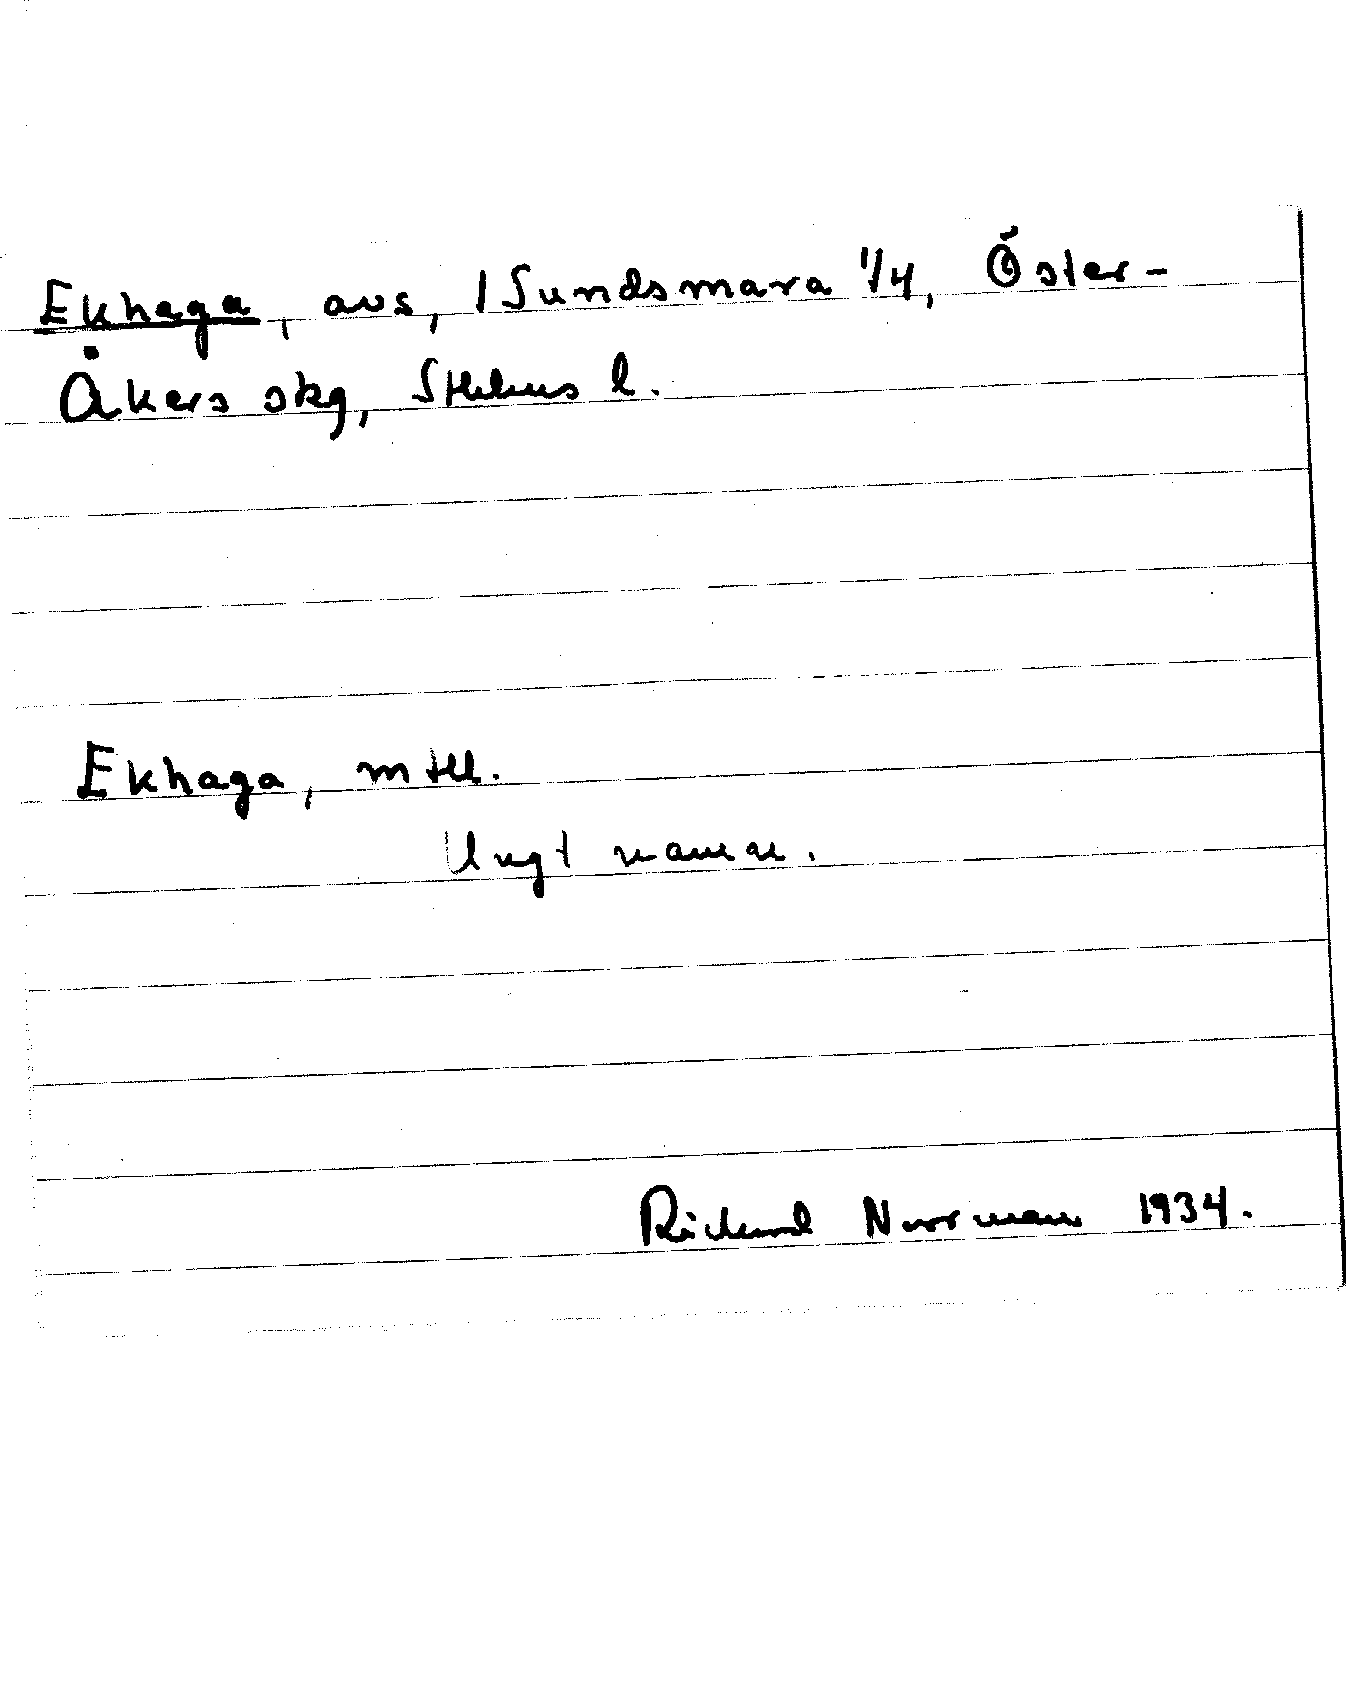 Ekhaga, avs, 1 Sundsmara 1/4, Öster-
Åkers skg, Sthlms l.
Ekhaga, mtll.
Ungt namn.
Richard Norrman 1934.